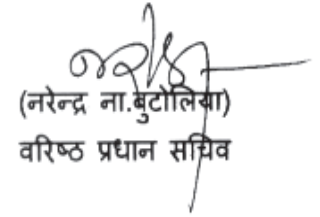 (नरेन्द्र ना.बुटोलिया)
वरिष्ठ प्रधान सचिव